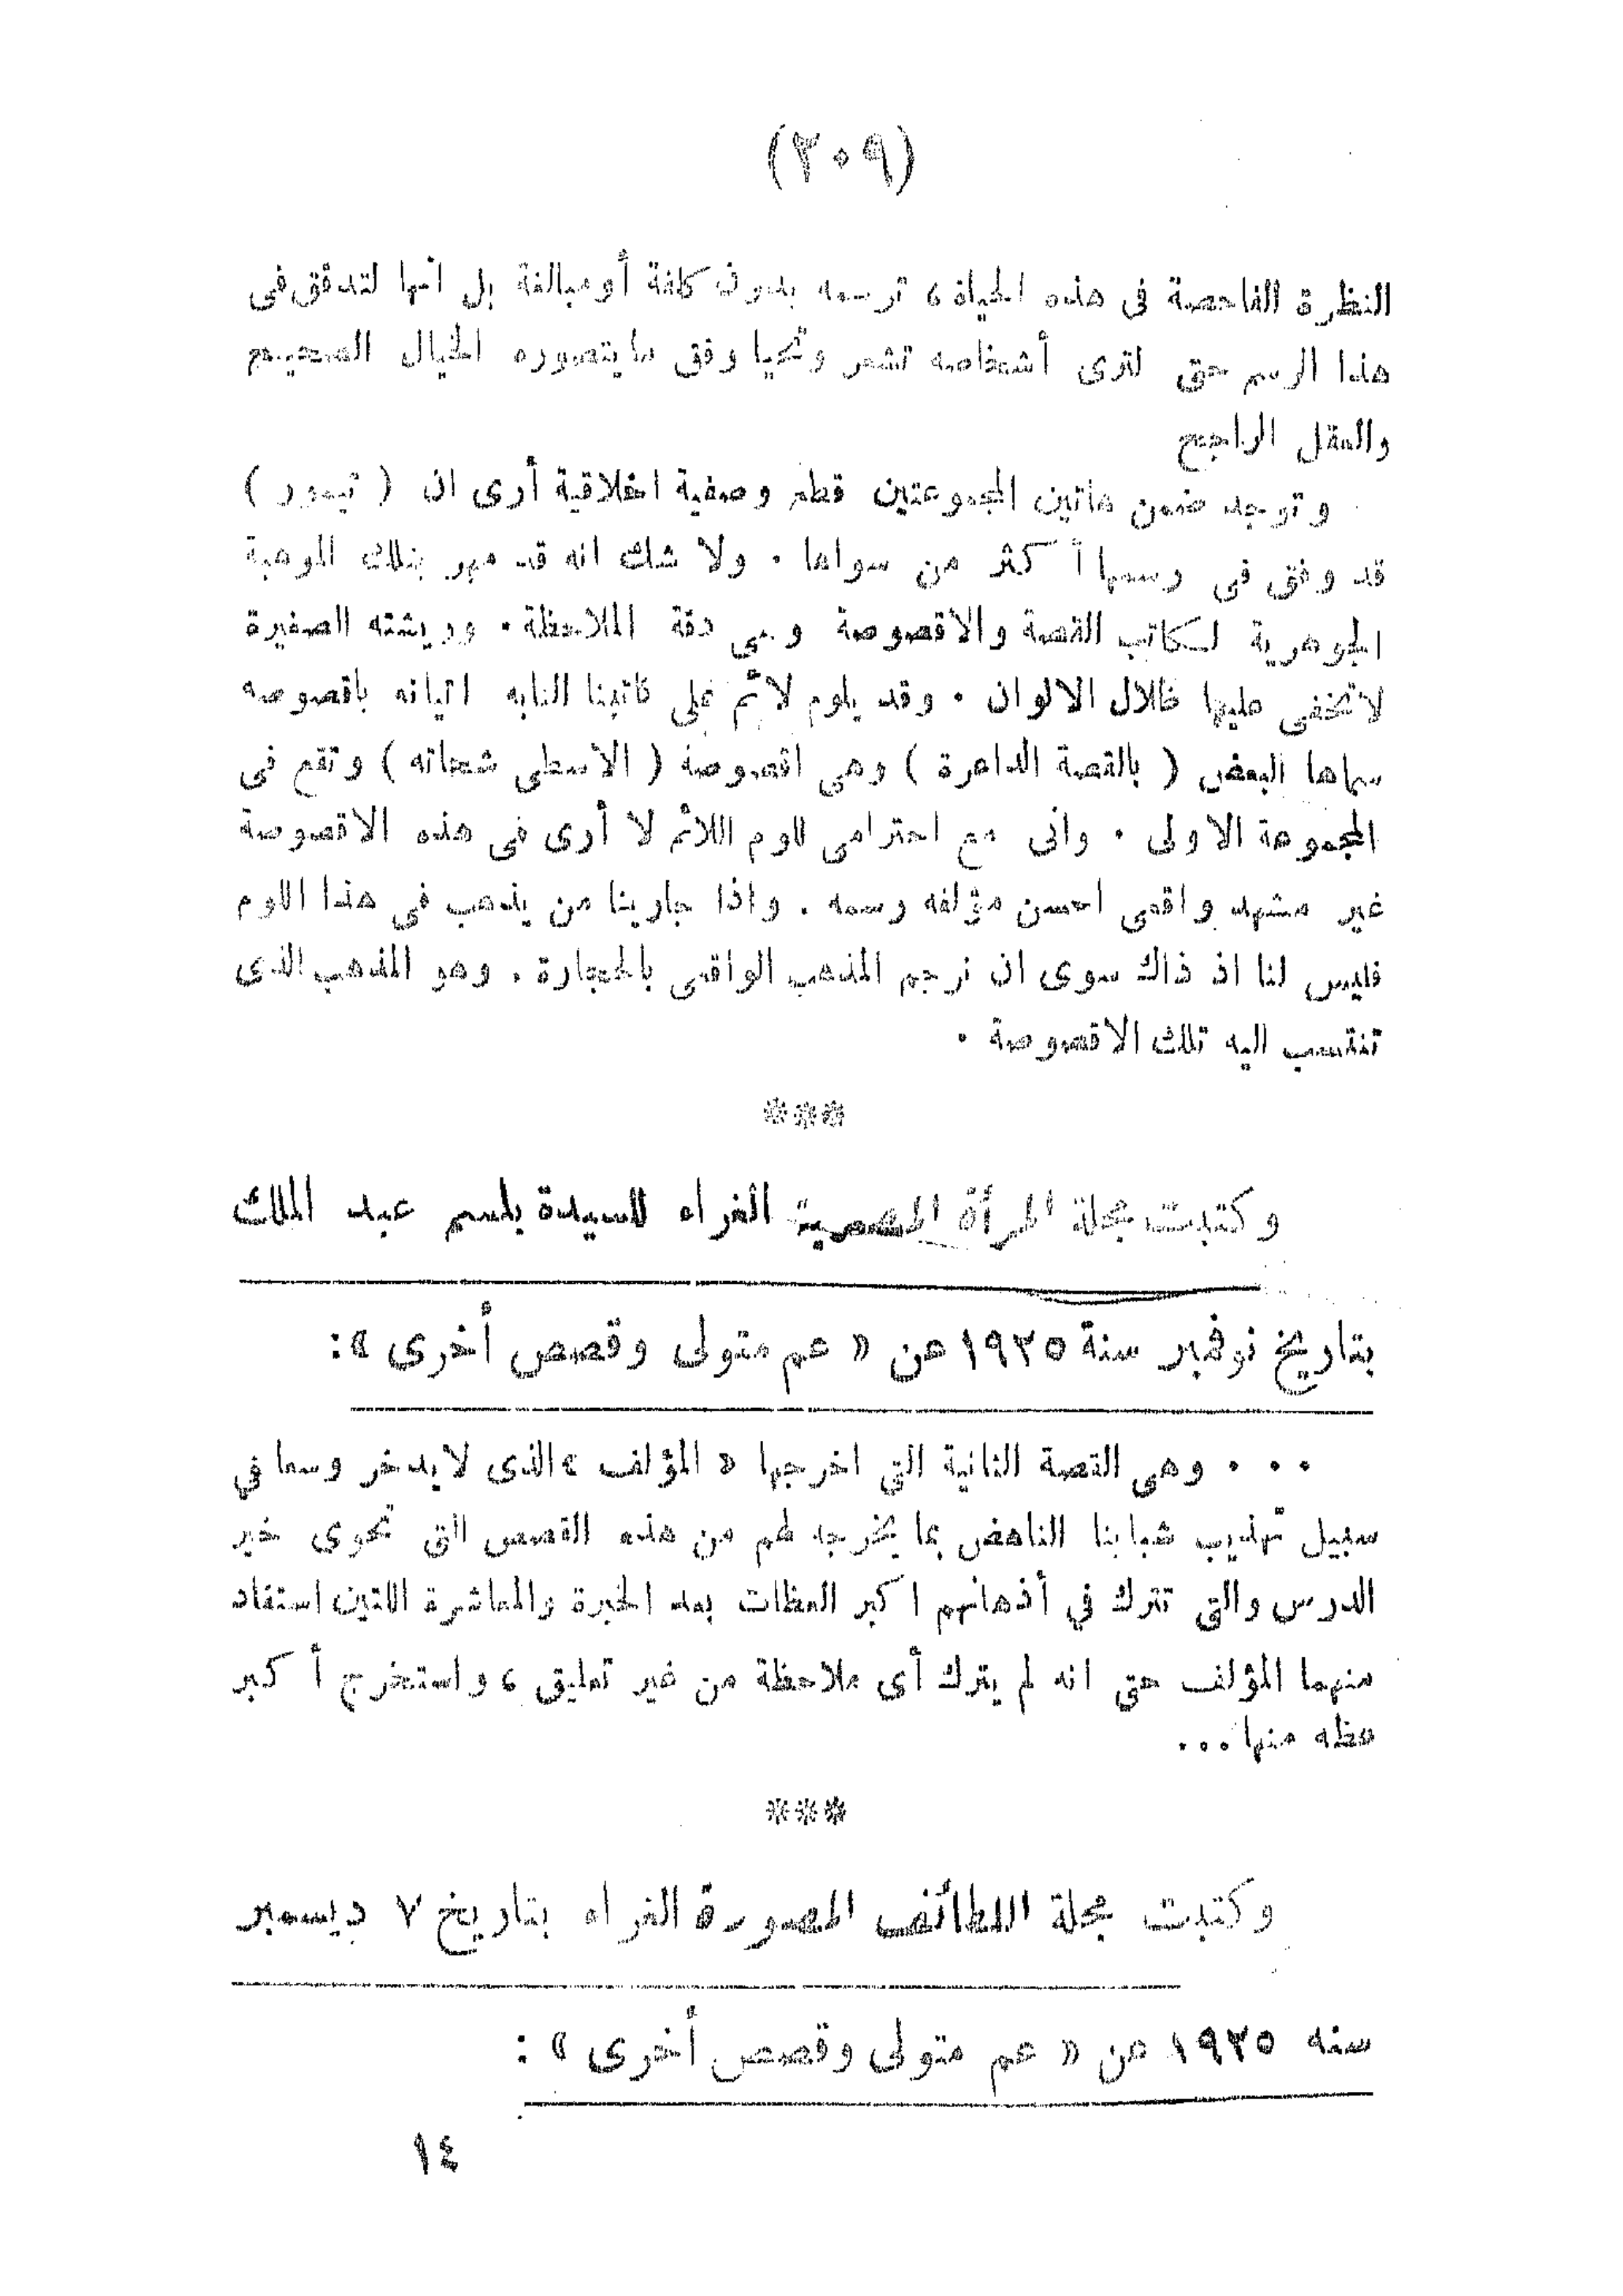 (٢٠٩)
النظرة الفاحصة فى هذه الحياة ، ترسمه بدون كلفة أو مبالغة بل انها لتدقق فى
هذا الرسم حتى لترى أشخاصه تشعر وتحيا وفق ما يتصوره الخيال الصحيح
والعقل الراجح
وتوجد ضمن هاتين المجموعتين قطع وصفية اخلاقية أرى ان ( تيمور )
قد وفق فى رسمها أكثر من سواها . ولا شك انه قد مهر بتلك الموهبة
الجوهرية لكاتب القصة والاقصوصة وهى دقة الملاحظة . وريشته الصغيرة
لا تخفى عليها ظلال الالوان . وقد يلوم لائم على كاتبنا النابه اتيانه باقصوصه
سماها البعض ( بالقصة الداعرة ) وهى اقصوصة ( الاسطى شحاته ) وتقع فى
المجموعة الاولى . وانى مع احترامى للوم اللائم لا أرى فى هذه الاقصوصة
غير مشهد واقعى احسن مؤلفه رسمه . واذا جارينا من يذهب فى هذا اللوم
فليس لنا اذ ذاك سوى ان نرجم المذهب الواقعى بالحجارة . وهو المذهب الذى
تنتسب اليه تلك الاقصوصة .
***
وكتبت مجلة المرأة المصرية الغراء للسيدة بلسم عبد الملك
بتاريخ نوفمبر سنة ١٩٢٥ عن « عم متولى وقصص أخرى » :
. . . وهى القصة الثانية التى اخرجها « المؤلف » الذى لا يدخر وسعا في
سبيل تهذيب شبابنا الناهض بما يخرجه لهم من هذه القصص التى تحوى خير
الدرس والتى تترك في أذهانهم اكبر العظات بعد الخبرة والمعاشرة اللتين استفاد
منهما المؤلف حتى انه لم يترك أى ملاحظة من غير تعليق ، واستخرج أكبر
عظه منها ...
***
وكتبت مجلة اللطائف المصورة الغراء بتاريخ ٧ ديسمبر
سنه ١٩٢٥ عن « عم متولى وقصص أخرى » :
١٤